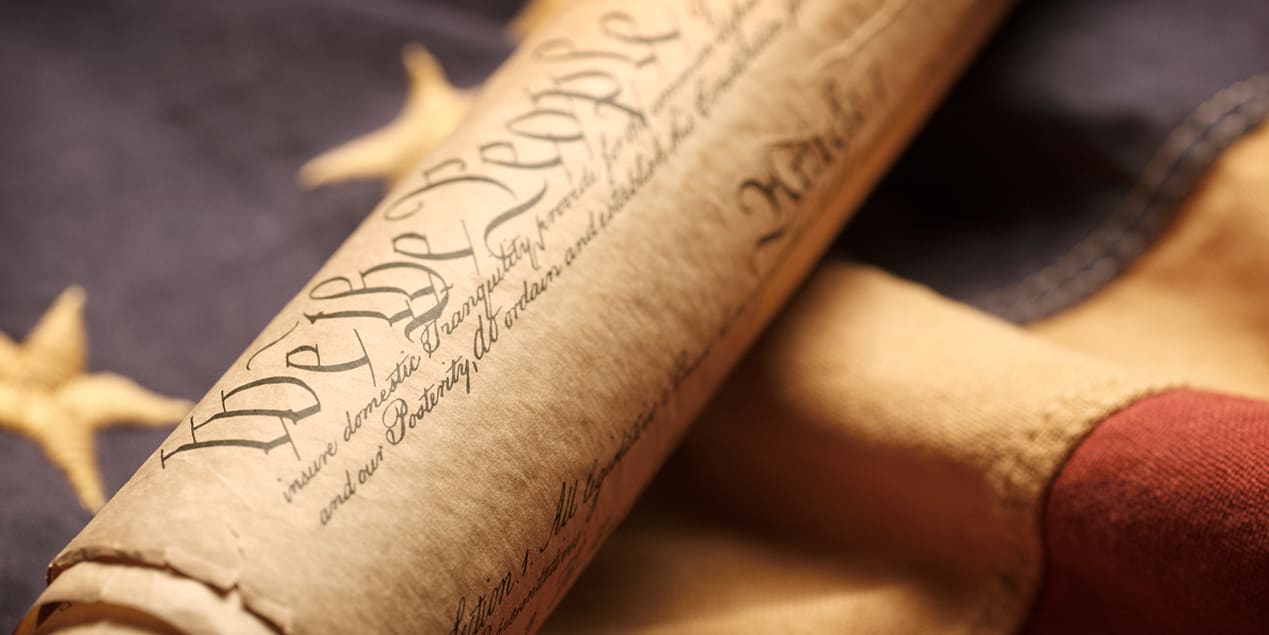 We the People
insure domestic Tranquility, provide for the common
and our Posterity, do ordain and establish this Constitution
Article
ction. 1. All legislative